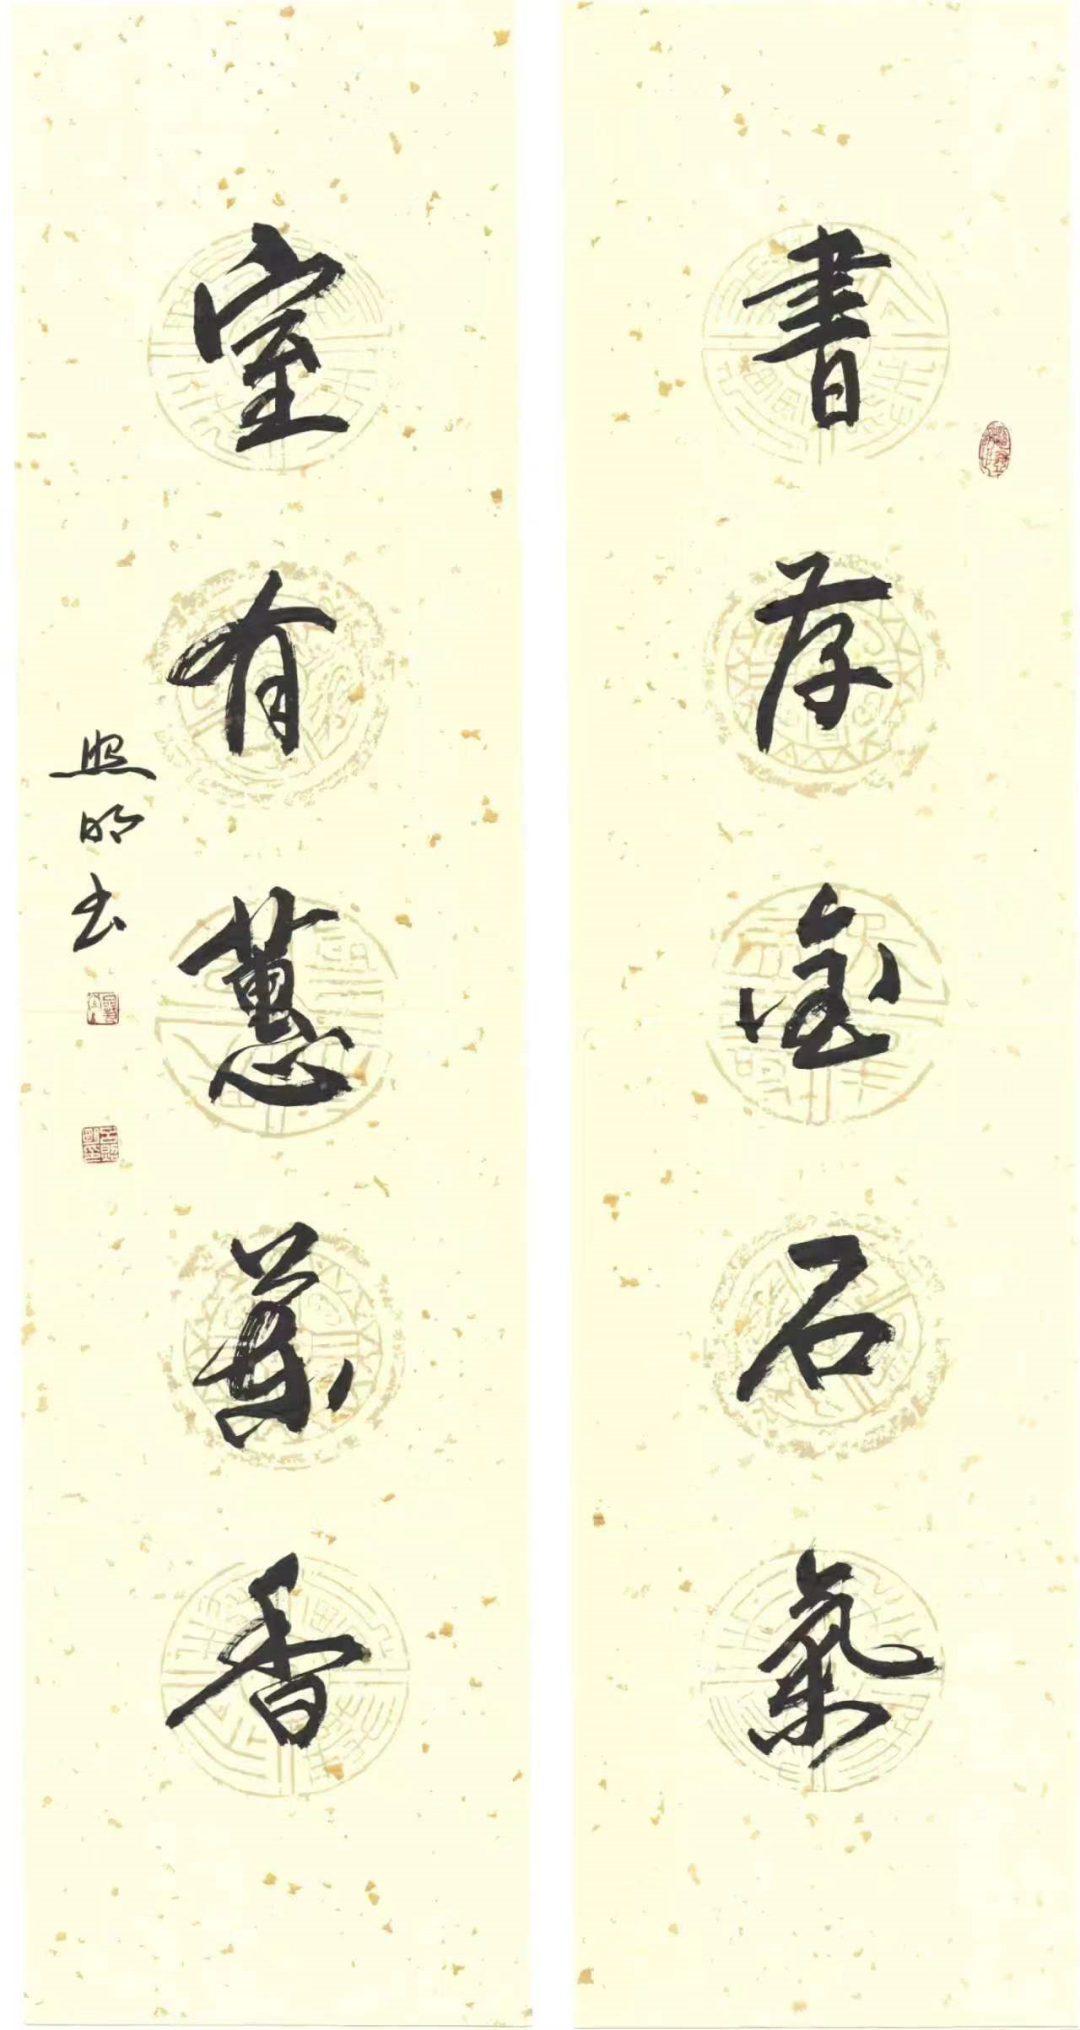 書存金石氣
室有蕙蘭香
照明书